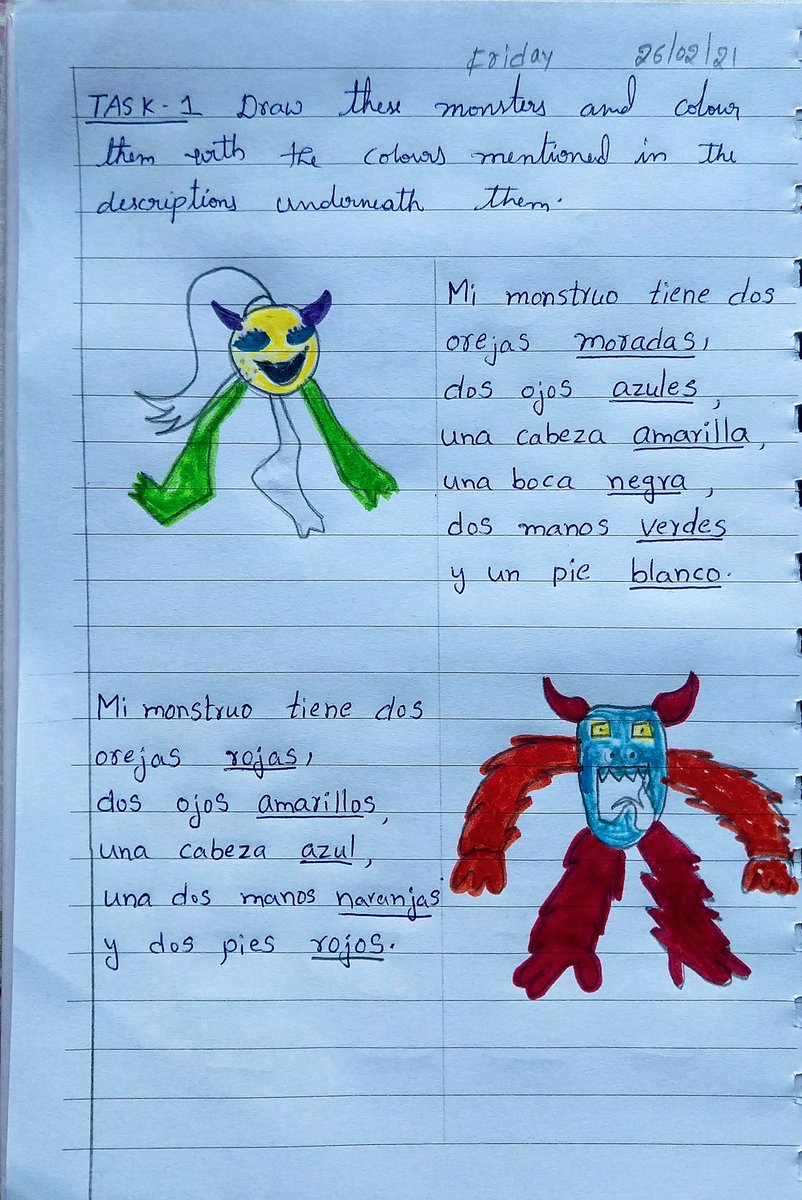 Friday 26/02/21
TASK-1 Draw these monsters and colour
them with the colours mentioned in the
descriptions underneath them.
Mi monstruo tiene dos
orejas moradas,
dos ojos azules,
una cabeza amarilla,
una boca negra,
dos manos verdes
y un pie blanco.
Mi monstruo tiene dos
orejas rojas,
dos ojos amarillos,
una cabeza azul,
una dos manos naranjas
y dos pies rojos.